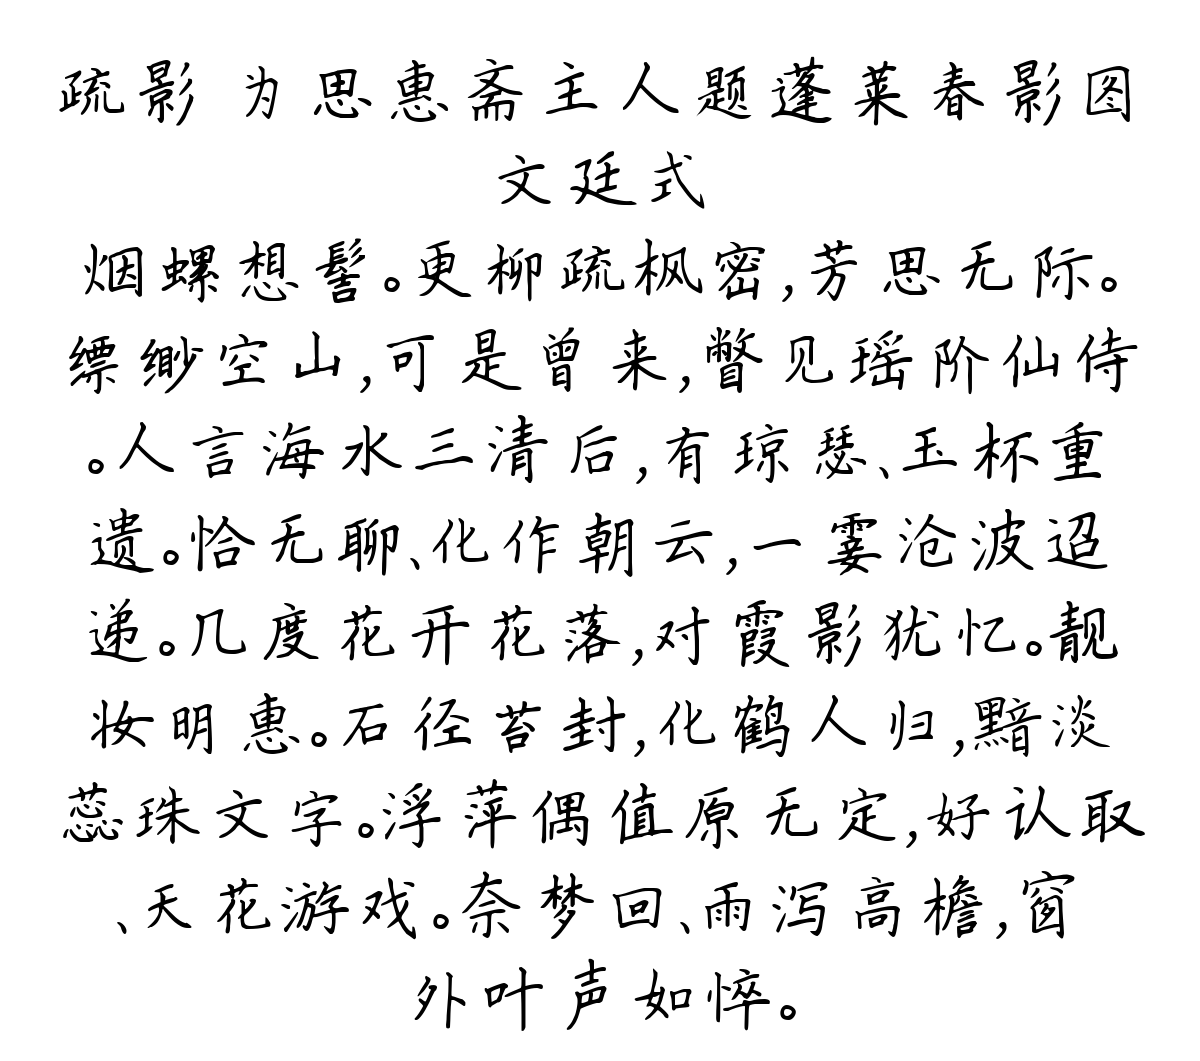 疏影 为思惠斋主人题蓬莱春影图
文廷式
烟螺想髻。更柳疏枫密,芳思无际。
缥缈空山,可是曾来,瞥见瑶阶仙侍
。人言海水三清后,有琼瑟、玉杯重
遗。恰无聊、化作朝云,一霎沧波迢
递。几度花开花落,对霞影犹忆。靓
妆明惠。石径苔封,化鹤人归,黯淡
蕊珠文字。浮萍偶值原无定,好认取
、天花游戏。奈梦回、雨泻高檐,窗
外叶声如悴。